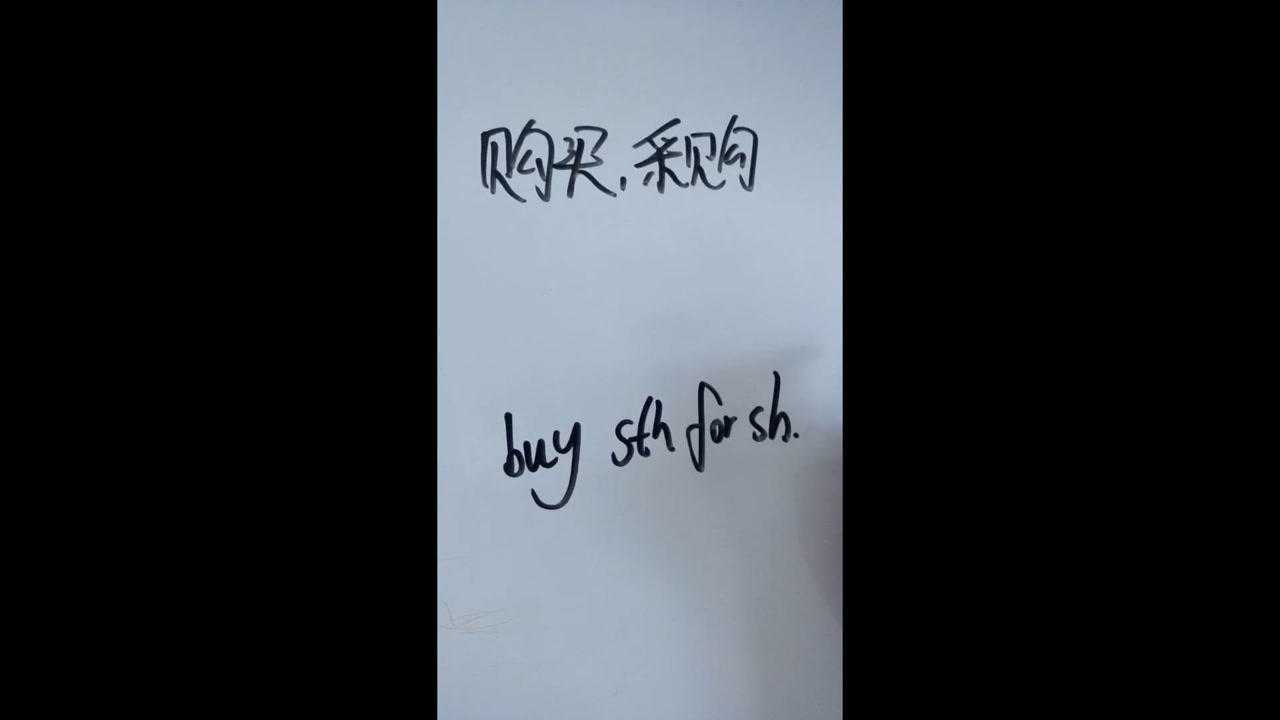 购买,采购
buy sth for sb.